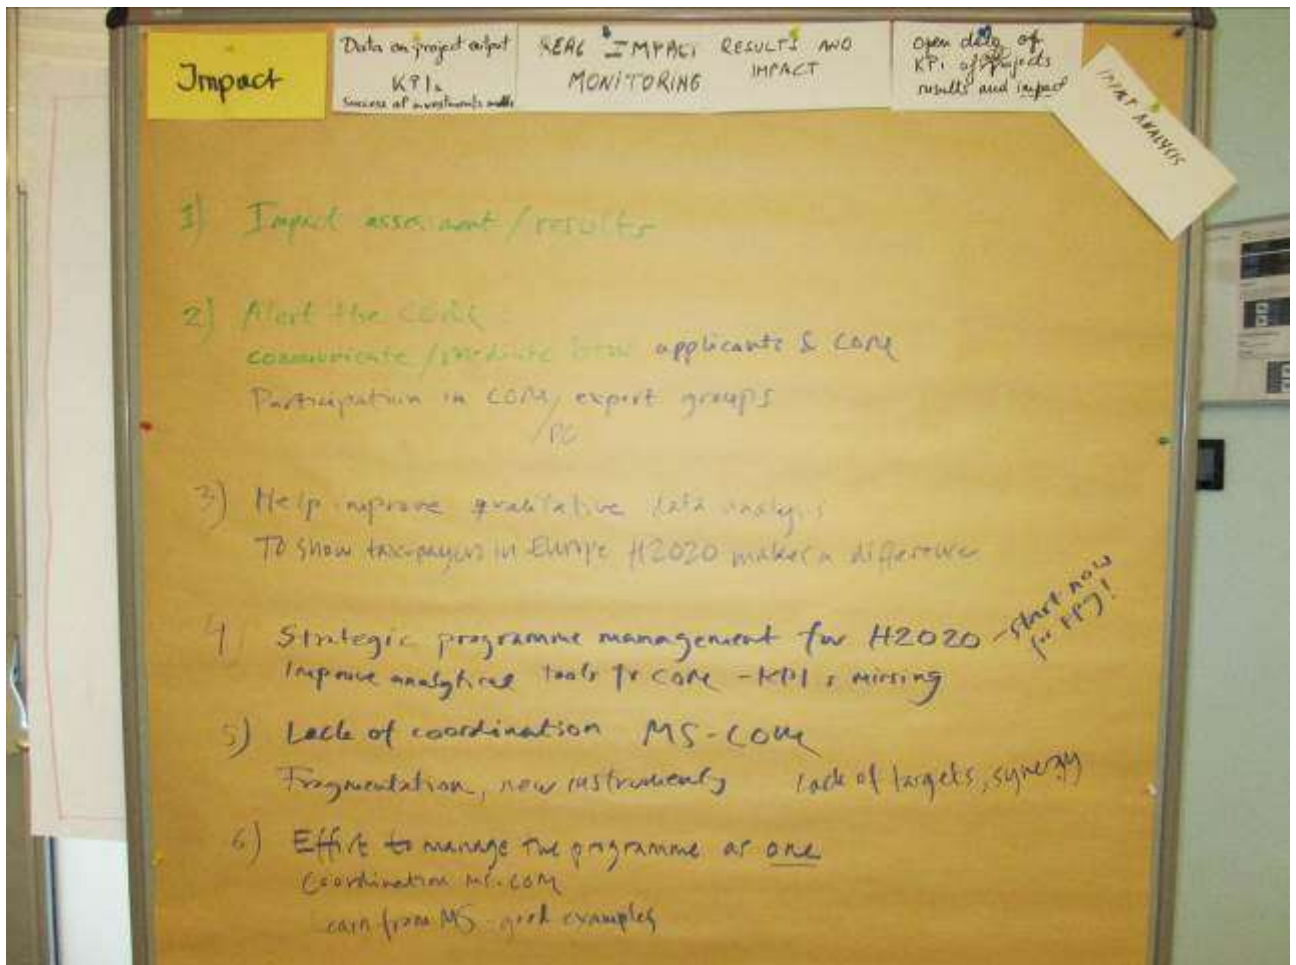 Impact
Data on project output
KPIs
Success of investments made
REAL IMPACT
MONITORING
RESULTS AND
IMPACT
Open data of
KPI of projects
results and impact
IMPACT ANALYSIS
1) Impact assessment / results
2) Alert the COM:
communicate / mediate btw applicants & COM
Participation in COM, expert groups
/PC
3) Help improve qualitative data analysis
To show taxpayers in Europe H2020 makes a difference
4) Strategic programme management for H2020 - start now
for FP9!
Improve analytical tools for COM - KPIs missing
5) Lack of coordination MS-COM
Fragmentation, new instruments lack of targets, synergy
6) Effort to manage the programme as one
Coordination MS-COM
Learn from MS - good examples